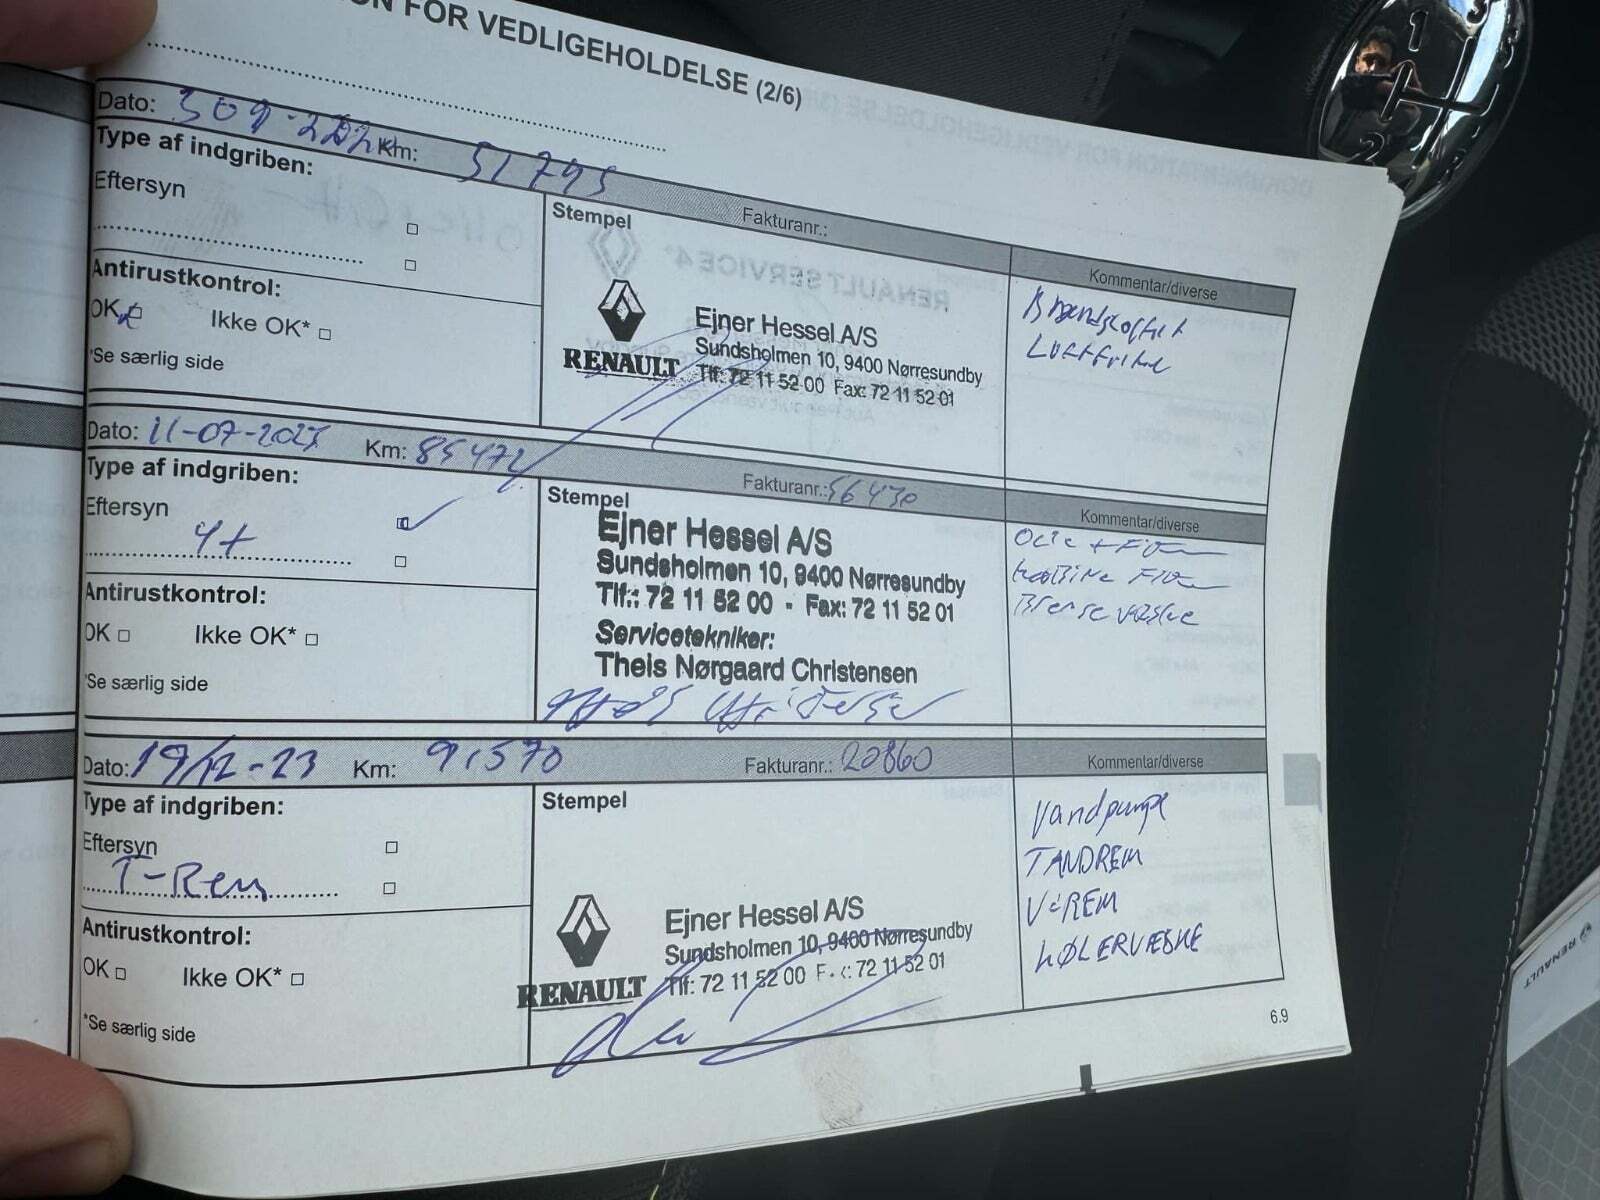 ON FOR VEDLIGEHOLDELSE (2/6)
Dato: Km: 51795
Type af indgriben:
Eftersyn
Stempel
Fakturanr.:
Kommentar/diverse
Antirustkontrol:
OK Ikke OK*
*Se særlig side
RENAULT
Ejner Hessel A/S
Sundsholmen 10, 9400 Nørresundby
Tlf: 72 11 52 00 Fax: 72 11 52 01
Luftfilter
Dato: 11-07-2023 Km: 85472
Type af indgriben:
Eftersyn
4+
Stempel
Fakturanr.: 56430
Kommentar/diverse
Antirustkontrol:
OK Ikke OK*
*Se særlig side
Ejner Hessel A/S
Sundsholmen 10, 9400 Nørresundby
Tlf.: 72 11 52 00 - Fax: 72 11 52 01
Servicetekniker:
Theis Nørgaard Christensen
Olie + Filter
Kabine Filter
Bremsevæske
Dato: 19/12-23 Km: 91570
Type af indgriben:
Eftersyn
T-Rem
Stempel
Fakturanr.: 20860
Kommentar/diverse
Antirustkontrol:
OK Ikke OK*
*Se særlig side
RENAULT
Ejner Hessel A/S
Sundsholmen 10, 9400 Nørresundby
Tlf: 72 11 52 00 F : 72 11 52 01
Vandpumpe
TANDREM
V-REM
KØLERVÆSKE
6.9
1 3 5
2
RENAULT